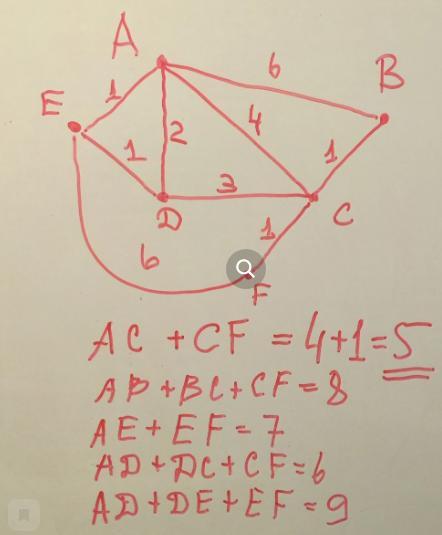 A
6
B
E
1
4
2
1
1
3
D
C
1
6
F
AC + CF = 4+1=5
AB+BC+CF=8
AE+EF=7
AD+DC+CF=6
AD+DE+EF=9